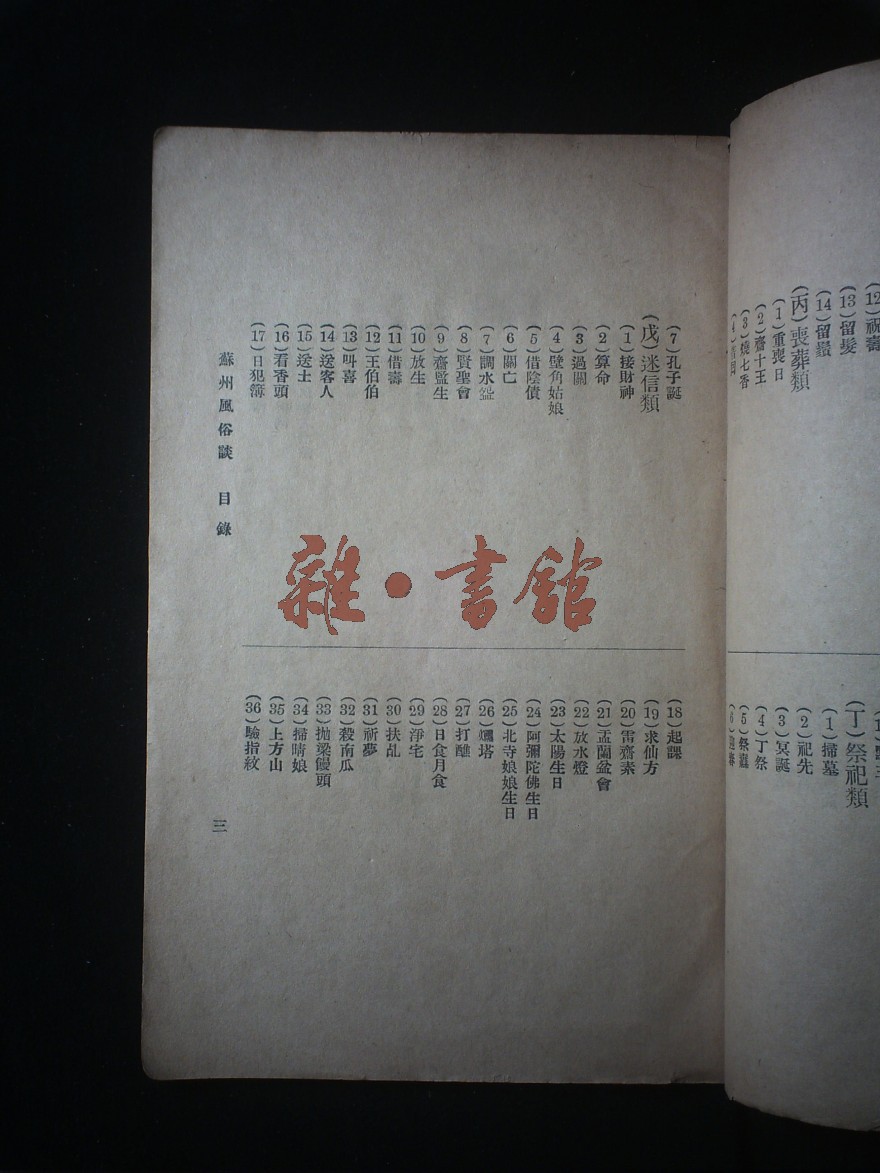 12)祝壽
(13)留髮
(14)留鬚
(丙)喪葬類
(1)重喪日
(2)齋十王
(3)燒七香
(丁)祭祀類
(1)掃墓
(2)祀先
(3)冥誕
(4)丁祭
(5)祭竈
(7)孔子誕
(戊)迷信類
(1)接財神
(2)算命
(3)過關
(4)壁角姑娘
(5)借陰債
(6)關亡
(7)調水盌
(8)賢聖會
(9)齋監生
(10)放生
(11)借壽
(12)王伯伯
(13)叫喜
(14)送客人
(15)送土
(16)看香頭
(17)日犯簿
(18)起課
(19)求仙方
(20)雷齋素
(21)盂蘭盆會
(22)放水燈
(23)太陽生日
(24)阿彌陀佛生日
(25)北寺娘娘生日
(26)塔
(27)打醮
(28)日食月食
(29)淨宅
(30)扶乩
(31)祈夢
(32)穀南瓜
(33)拋梁饅頭
(34)掃晴娘
(35)上方山
(36)驗指紋
蘇州風俗談 目錄
三
雜·書館